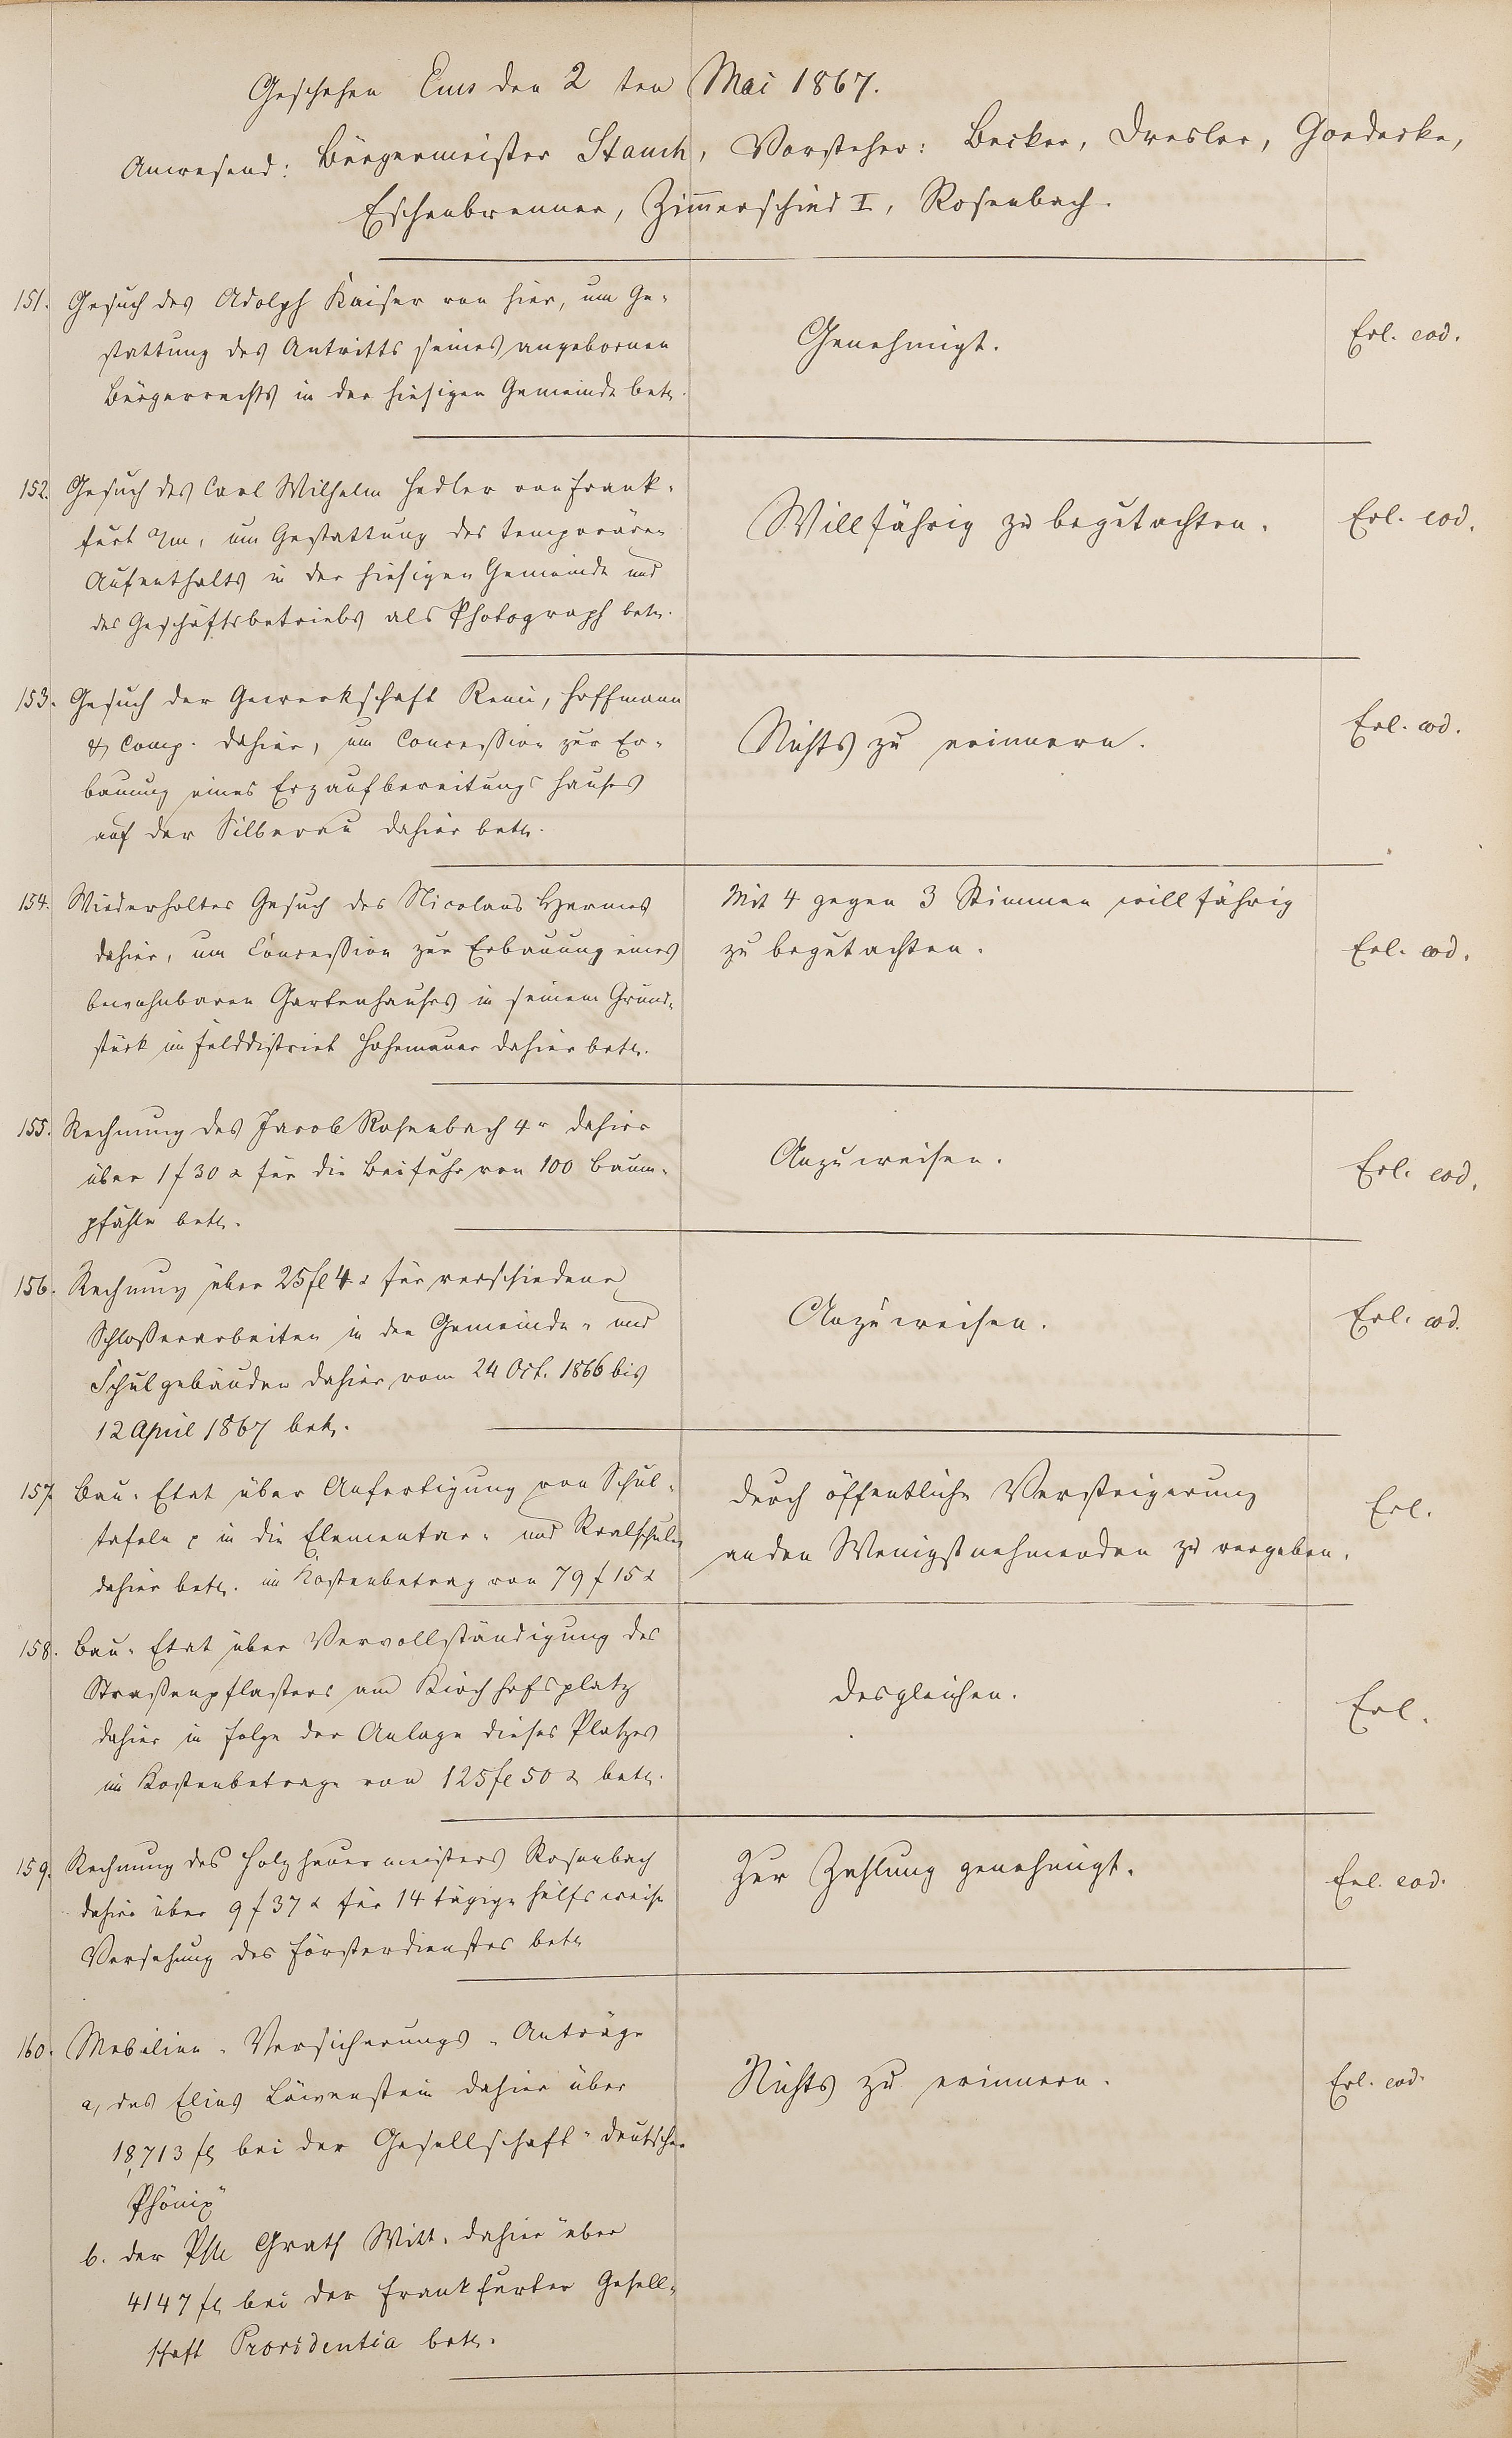 Geschehen Ems den 2ten Mai 1867.
Anwesend: Bürgermeister Stauch, Vorsteher: Becker, Dresler, Goedecke,
Eschenbrenner, Zim̅erschied I, Rosenbach.
151. Gesuch des Adolph Kaiser von hier, um Ge-
stattung des Antritts seines angebornen
Bürgerrechts in der hiesigen Gemeinde betr.
Genehmigt.
Erl. eod.
152. Gesuch des Carl Wilhelm Hedler von Frank-
furt a/m, um Gestattung des temporären
Aufenthalts in der hiesigen Gemeinde und
des Geschäftsbetriebs als Photograph betr.
Willfährig zu begutachten.
Erl. eod.
153. Gesuch der Gewerkschaft Remi, Hoffmann
& Comp. dahier, um Concession zur Er-
bauung eines Erzaufbereitungshauses
auf der Silberau dahier betr.
Nichts zu erinnern.
Erl. eod.
154. Wiederholtes Gesuch des Nicolaus Hermes
dahier, um Concession zur Erbauung eines
bewohnbaren Gartenhauses in seinem Grund-
stück im Felddistrict Hohemauer dahier betr.
Mit 4 gegen 3 Stimmen willfährig
zu begutachten.
Erl. eod.
155. Rechnung des Jacob Rosenbach 4r dahier
über 1 f 30 x für die Beifuhr von 100 Baum-
pfähle betr.
Anzuweisen.
Erl. eod.
156. Rechnung über 25 fl 4 x für verschiedene
Schlosserarbeiten in den Gemeinde- und
Schulgebäuden dahier vom 24 Oct. 1866 bis
12 April 1867 betr.
Anzuweisen.
Erl. eod.
157. Bau-Etat über Anfertigung von Schul-
tafeln p in die Elementar- und Realschule
dahier betr. im Kostenbetrag von 79 f 15 x
durch öffentliche Versteigerung
an den Wenigstnehmenden zu vergeben.
Erl.
158. Bau-Etat über Vervollständigung des
Straßenpflasters am Kirchhofsplatz
dahier in Folge der Anlage dieses Platzes
im Kostenbetrage von 125 fl 50 x betr.
desgleichen.
Erl.
159. Rechnung des Holzhauermeisters Rosenbach
dahier über 9 f 37 x für 14 tägige hülfsweise
Versehung des Försterdienstes betr
Zur Zahlung genehmigt.
Erl. eod.
160. Mobilien-Versicherungs-Anträge
a, des Elias Löwenstein dahier über
18,713 fl bei der Gesellschaft "deutscher
Phönix"
Nichts zu erinnern.
Erl. eod.
b. der Grath Witt. dahier über
4147 fl bei der Frankfurter Gesell-
schaft Providentia betr.